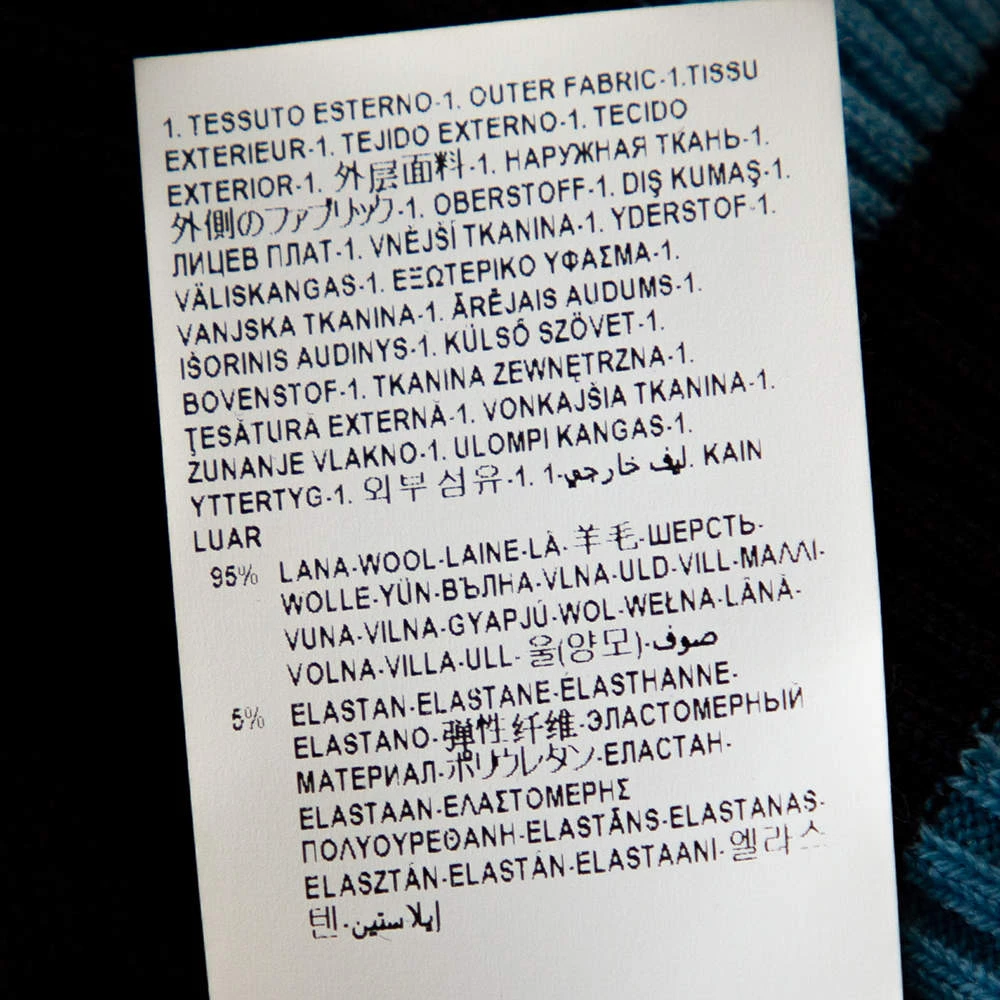 1. TESSUTO ESTERNO-1. OUTER FABRIC-1.TISSU
EXTERIEUR-1. TEJIDO EXTERNO-1. TECIDO
EXTERIOR-1. 外层面料-1. НАРУЖНАЯ ТКАНЬ-1.
外側のファブリック-1. OBERSTOFF-1. DIŞ KUMAŞ-1.
ЛИЦЕВ ПЛАТ-1. VNĚJŠÍ TKANINA-1. YDERSTOF-1.
VÄLISKANGAS-1. ΕΞΩΤΕΡΙΚΟ ΥΦΑΣΜΑ-1.
VANJSKA TKANINA-1. ĀRĒJAIS AUDUMS-1.
IŠORINIS AUDINYS-1. KÜLSŐ SZÖVET-1.
BOVENSTOF-1. TKANINA ZEWNĘTRZNA-1.
ŢESĂTURĂ EXTERNĂ-1. VONKAJŠIA TKANINA-1.
ZUNANJE VLAKNO-1. ULOMPI KANGAS-1.
YTTERTYG-1. 외부 섬유-1. 1-ليف خارجي. KAIN
LUAR
95% LANA-WOOL-LAINE-LÃ-羊毛-ШЕРСТЬ-
WOLLE-YÜN-ВЪЛНА-VLNA-ULD-VILL-ΜΑΛΛΙ-
VUNA-VILNA-GYAPJÚ-WOL-WEŁNA-LÂNĂ-
VOLNA-VILLA-ULL-울(양모)-صوف
5% ELASTAN-ELASTANE-ÉLASTHANNE-
ELASTANO-弹性纤维-ЭЛАСТОМЕРНЫЙ
МАТЕРИАЛ-ポリウレタン-ЕЛАСТАН-
ELASTAAN-ΕΛΑΣΤΟΜΕΡΗΣ
ΠΟΛΥΟΥΡΕΘΑΝΗ-ELASTĀNS-ELASTANAS-
ELASZTÁN-ELASTÁN-ELASTAANI-엘라스
텐-إيلاستين